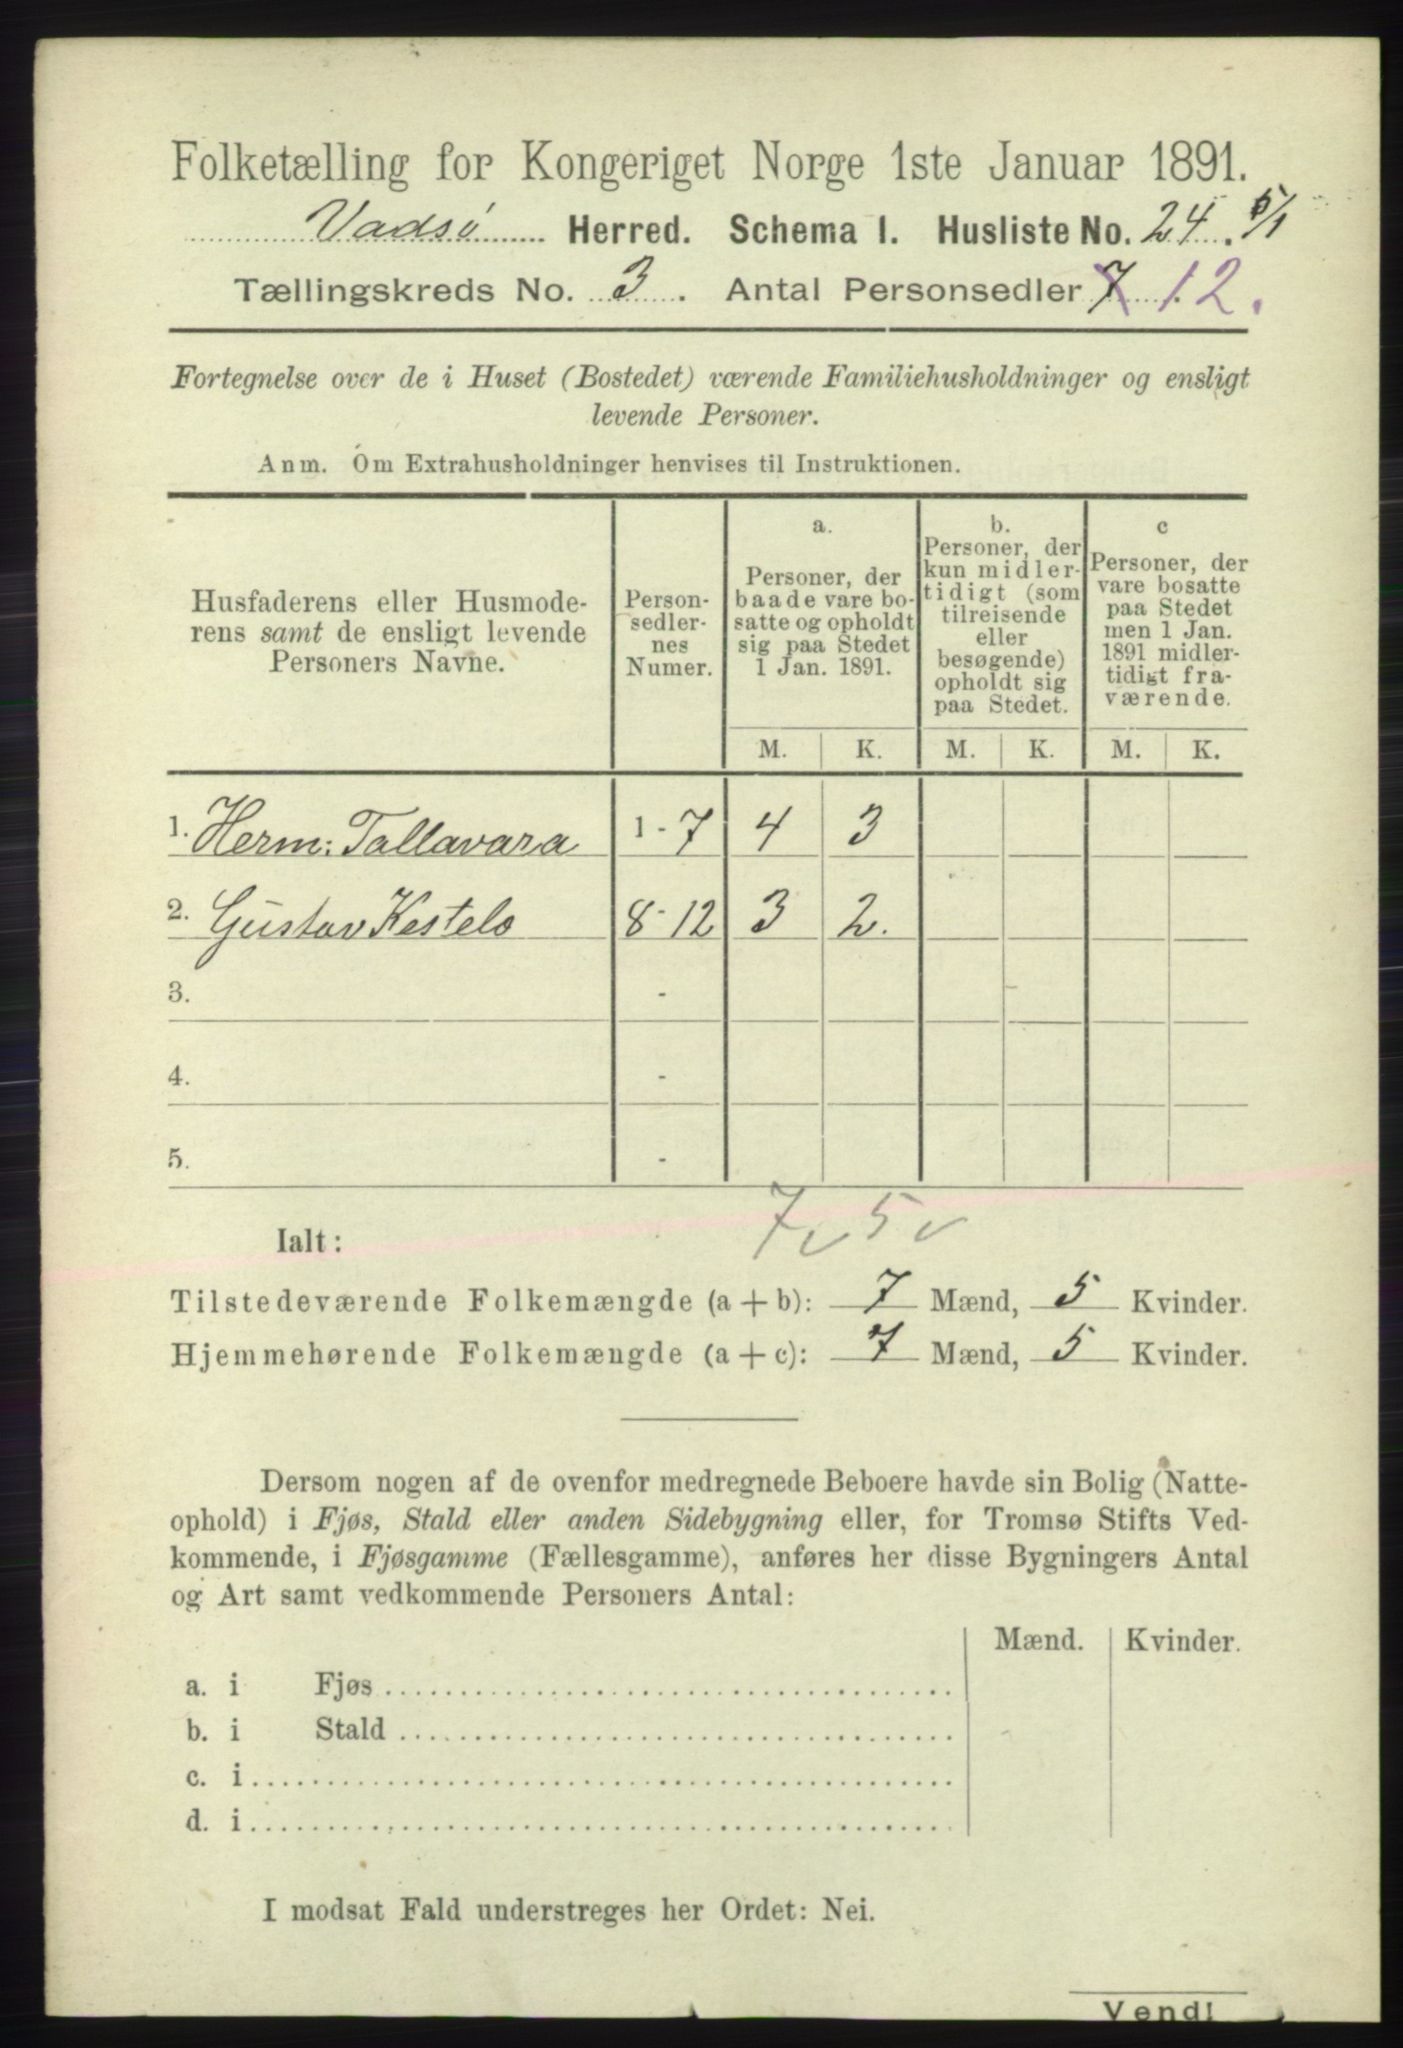 Folketælling for Kongeriget Norge 1ste Januar 1891.
Vadsø Herred. Schema I. Husliste No. 24. 5/1
Tællingskreds No. 3. Antal Personsedler 7 12.
Fortegnelse over de i Huset (Bostedet) værende Familiehusholdninger og ensligt
levende Personer.
Anm. Om Extrahusholdninger henvises til Instruktionen.
Husfaderens eller Husmode-
rens samt de ensligt levende
Personers Navne.
Person-
sedler-
nes
Numer.
a.
Personer, der
baade vare bo-
satte og opholdt
sig paa Stedet
1 Jan. 1891.
b.
Personer, der
kun midler-
tidigt (som
tilreisende
eller
besøgende)
opholdt sig
paa Stedet.
c
Personer, der
vare bosatte
paa Stedet
men 1 Jan.
1891 midler-
tidigt fra-
værende.
M. K. M. K. M. K.
1. Herm: Tallavara 1-7 4 3
2. Gustav Kestelo 8-12 3 2.
3. -
4. -
5. -
7 5
Ialt:
Tilstedeværende Folkemængde (a + b): 7 Mænd, 5 Kvinder.
Hjemmehørende Folkemængde (a + c): 7 Mænd, 5 Kvinder.
Dersom nogen af de ovenfor medregnede Beboere havde sin Bolig (Natte-
ophold) i Fjøs, Stald eller anden Sidebygning eller, for Tromsø Stifts Ved-
kommende, i Fjøsgamme (Fællesgamme), anføres her disse Bygningers Antal
og Art samt vedkommende Personers Antal:
Mænd. Kvinder.
a. i Fjøs
b. i Stald
c. i
d. i
I modsat Fald understreges her Ordet: Nei.
Vend!